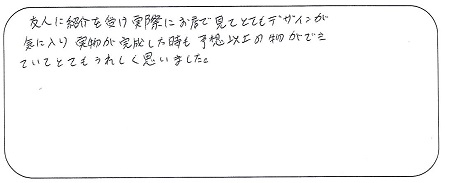 友人に紹介を受け実際にお店で見てとてもデザインが
気に入り実物が完成した時も予想以上の物ができ
ていてとてもうれしく思いました。